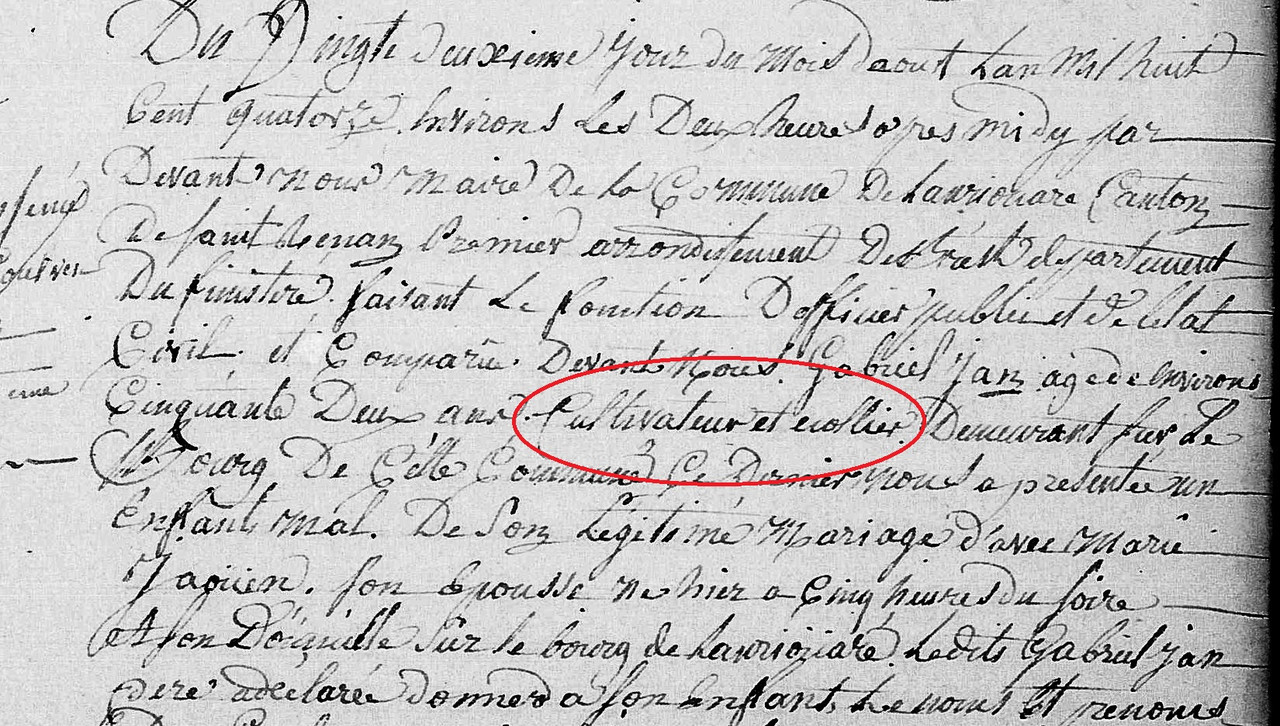 Du Vingte deuxieme jour du Mois daout Lan Mil huit
Cent quatorze. Environs Les Deux heures apres midy par
Devant Nous Maire De la Commune De Lanriouare Canton
De saint Renan Premier arrondisement De Brest departement
Du finistere. faisant Le fonction D officier public et de letat
Civil. et Comparû. Devant Nous. Gabriel Jan agé de Environs
Cinquante Deux ans. Cultivateur et Demeurant sur Le
Bourg De Cette Commune Ce Dernier nous a presentée un
Enfant mal. De Son Légitimé Mariage d'avec Marie
Jaouen. son Epousse né hier a Cinq heures du soire
sur le bourg de Lanriouare. Ledits Gabriel jan
pere adeclarée donner a son Enfant. Le noms Et prenoms